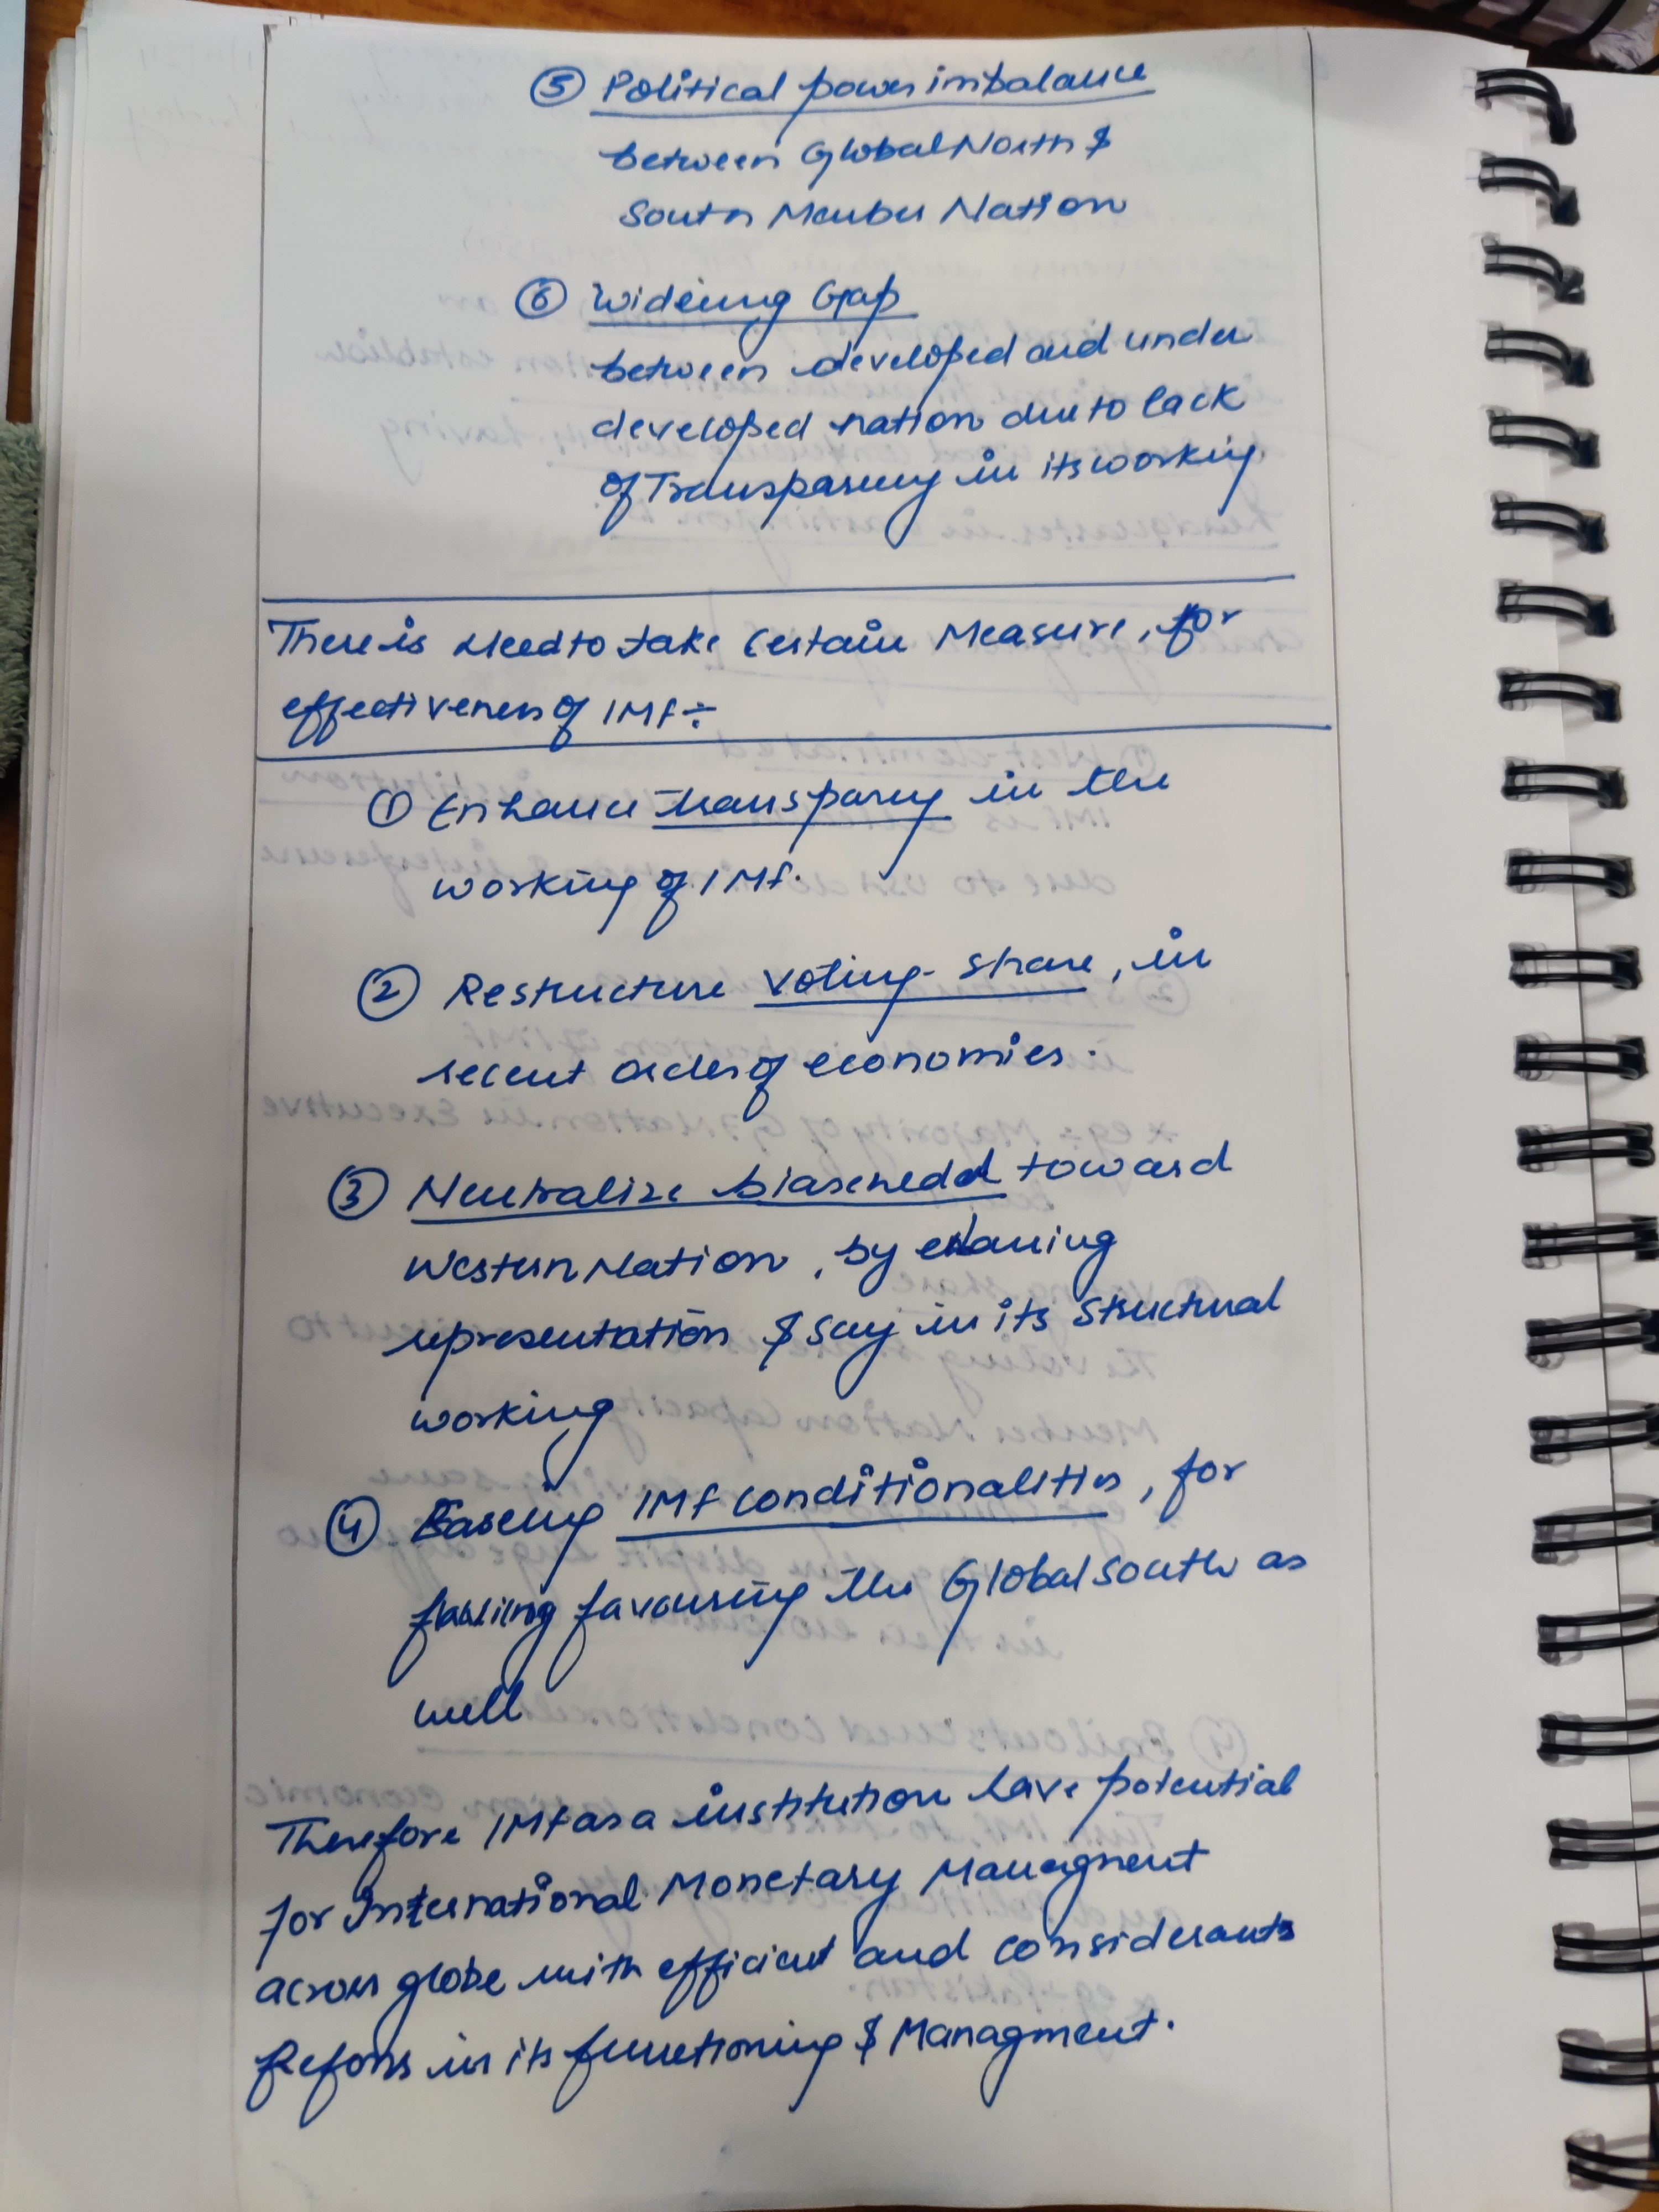 ⑤ Political power imbalance
between Global North &
South Member Nation
⑥ Widening Gap
between developed and under
developed nation due to lack
of Transparency in its working.
There is Need to take Certain Measure, for
effectiveness of IMF÷
① Enhance transparcy in the
working of IMF.
② Restructure voting share, in
recent order of economies.
③ Neutralize biasenedd toward
Western Nation, by
representation & say in its Structural
working
④ Easeing IMF conditionalities, for
favouring the Global South as
well
Therefore IMF as a institution have potential
for International Monetary Managment
across globe with efficient and considerants
Refoms in its functioning & Managment.